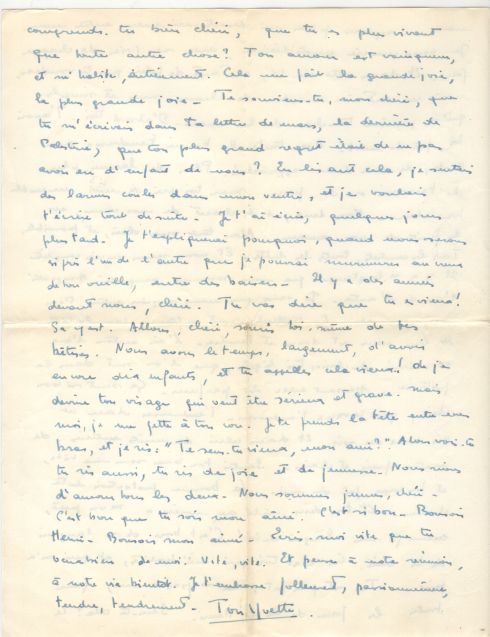 comprends-tu bien chéri, que tu es plus vivant
que toute autre chose? Ton amour est vainqueur,
et m'habite, entièrement. Cela me fait la grande joie,
la plus grande joie - Te souviens-tu, mon chéri, que
tu m'écrivais dans ta lettre de mars, la dernière de
que ton plus grand regret était de ne pas
avoir eu d'enfant de nous? En lisant cela, je sentais
des larmes couler dans mon ventre, et je voulais
t'écrire tout de suite. Je t'ai écris, quelques jours
plus tard. Je t'expliquerai pourquoi, quand nous serons
si près l'un de l'autre que je pourrai murmurer au creux
de ton oreille, entre des baisers - Il y a des années
devant nous, chéri. Tu vas dire que tu es vieux!
Ça y est. Allons, chéri, souris toi-même de tes
bêtises. Nous avons le temps, largement, d'avoir
encore dix enfants, et tu appelles cela vieux! Je
devine ton visage qui veut être sérieux et grave. Mais
moi, je me jette à ton cou. Je te prends la tête entre mes
bras, et je ris: "Te sens-tu vieux, mon aimé?". Alors vois-tu
tu ris aussi, tu ris de joie et de jeunesse. Nous rions
d'amour tous les deux - Nous sommes jeunes, chéri -
C'est bon que tu sois mon aimé. C'est si bon - Bonsoir
Henri - Bonsoir mon aimé - Ecris-moi vite que tu
de moi. Vite, vite. Et pense à notre réunion,
à notre vie bientôt. Je t'embrasse follement, passionnément,
tendre, tendrement - Ton Yvette.